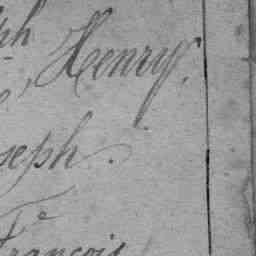 ph
, Henry.
seph.
Fe
François